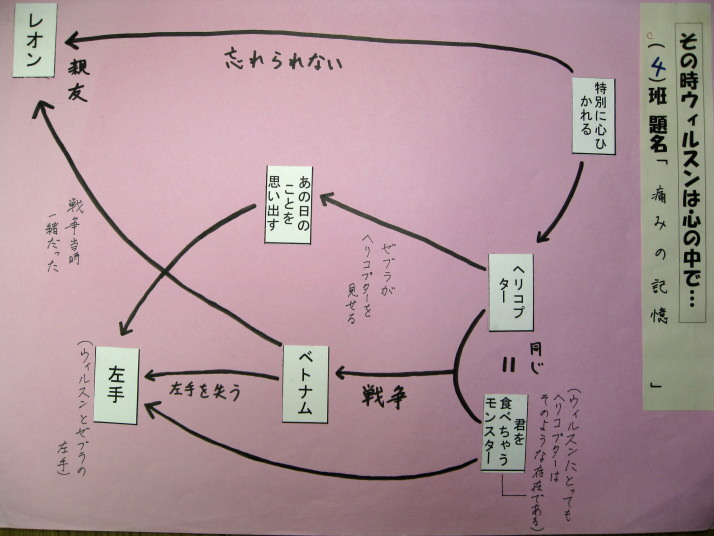 その時ウィルスンは心の中で…
(4)班 題名「痛みの記憶」
特別に心ひ
かれる
忘れられない
レオン
親友
ヘリコプ
ター
ゼブラが
ヘリコプターを
見せる
あの日の
ことを
思い出す
同じ
=
君を
食べちゃう
モンスター
(ウィルスンにとっても
ヘリコプターは
そのような存在である)
戦争
ベトナム
戦争当時
一緒だった
左手を失う
左手
(ウィルスンとゼブラの
左手)